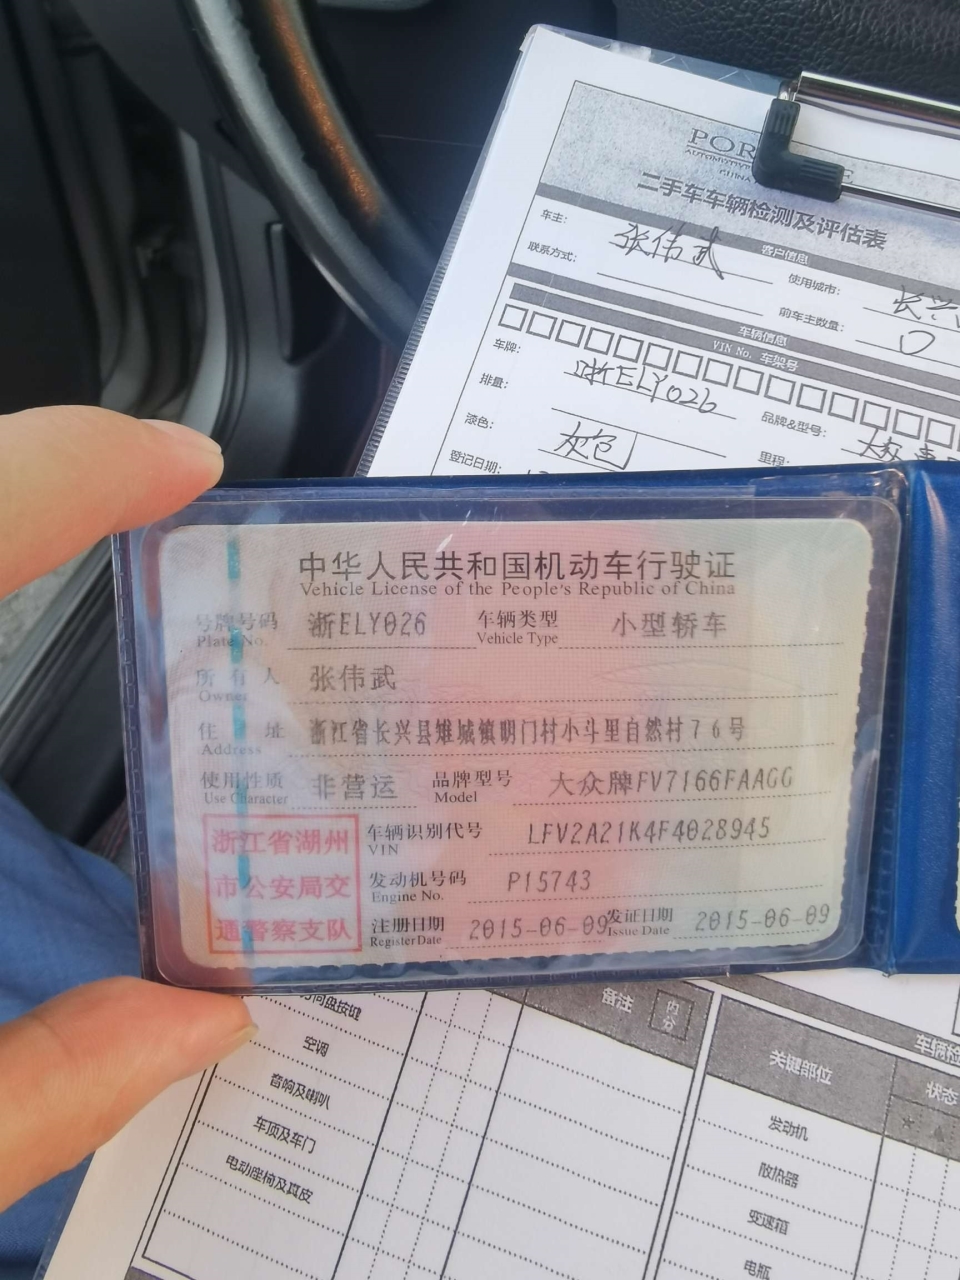 POR
AUTOMOTIV
CHINA
二手车车辆检测及评估表
客户信息
车主： 张伟武
使用城市： 长兴
联系方式：
前车主数量： 0
车辆信息
VIN No. 车架号
车牌： 浙ELY026
品牌&型号： 大众
排量：
里程：
漆色： 灰色
登记日期：
中华人民共和国机动车行驶证
Vehicle License of the People's Republic of China
号牌号码 浙ELY026 车辆类型 小型轿车
Plate No. Vehicle Type
所有人 张伟武
Owner
住址 浙江省长兴县雉城镇明门村小斗里自然村76号
Address
使用性质 非营运 品牌型号 大众牌FV7166FAAGG
Use Character Model
浙江省湖州
市公安局交
通警察支队
车辆识别代号 LFV2A21K4F4028945
VIN
发动机号码 P15743
Engine No.
注册日期 2015-06-09 发证日期 2015-06-09
Register Date Issue Date
方向盘按键
空调
音响及喇叭
车顶及车门
电动座椅及真皮
备注
内
分
车辆检
关键部位
状态
发动机
散热器
变速箱
电瓶